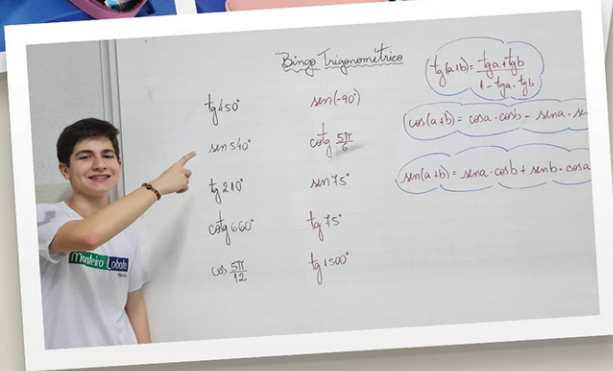 Bingo Trigonométrico
tg 450°
sen 540°
tg 210°
cotg 660°
cos 5π/12
sen(-90°)
cotg 5π/6
sen 75°
tg 75°
tg 1500°
tg(a+b) = tga + tgb / 1 - tga · tgb
cos(a+b) = cosa · cosb - sena · se
sen(a+b) = sena · cosb + senb · cosa
Monteiro Lobato